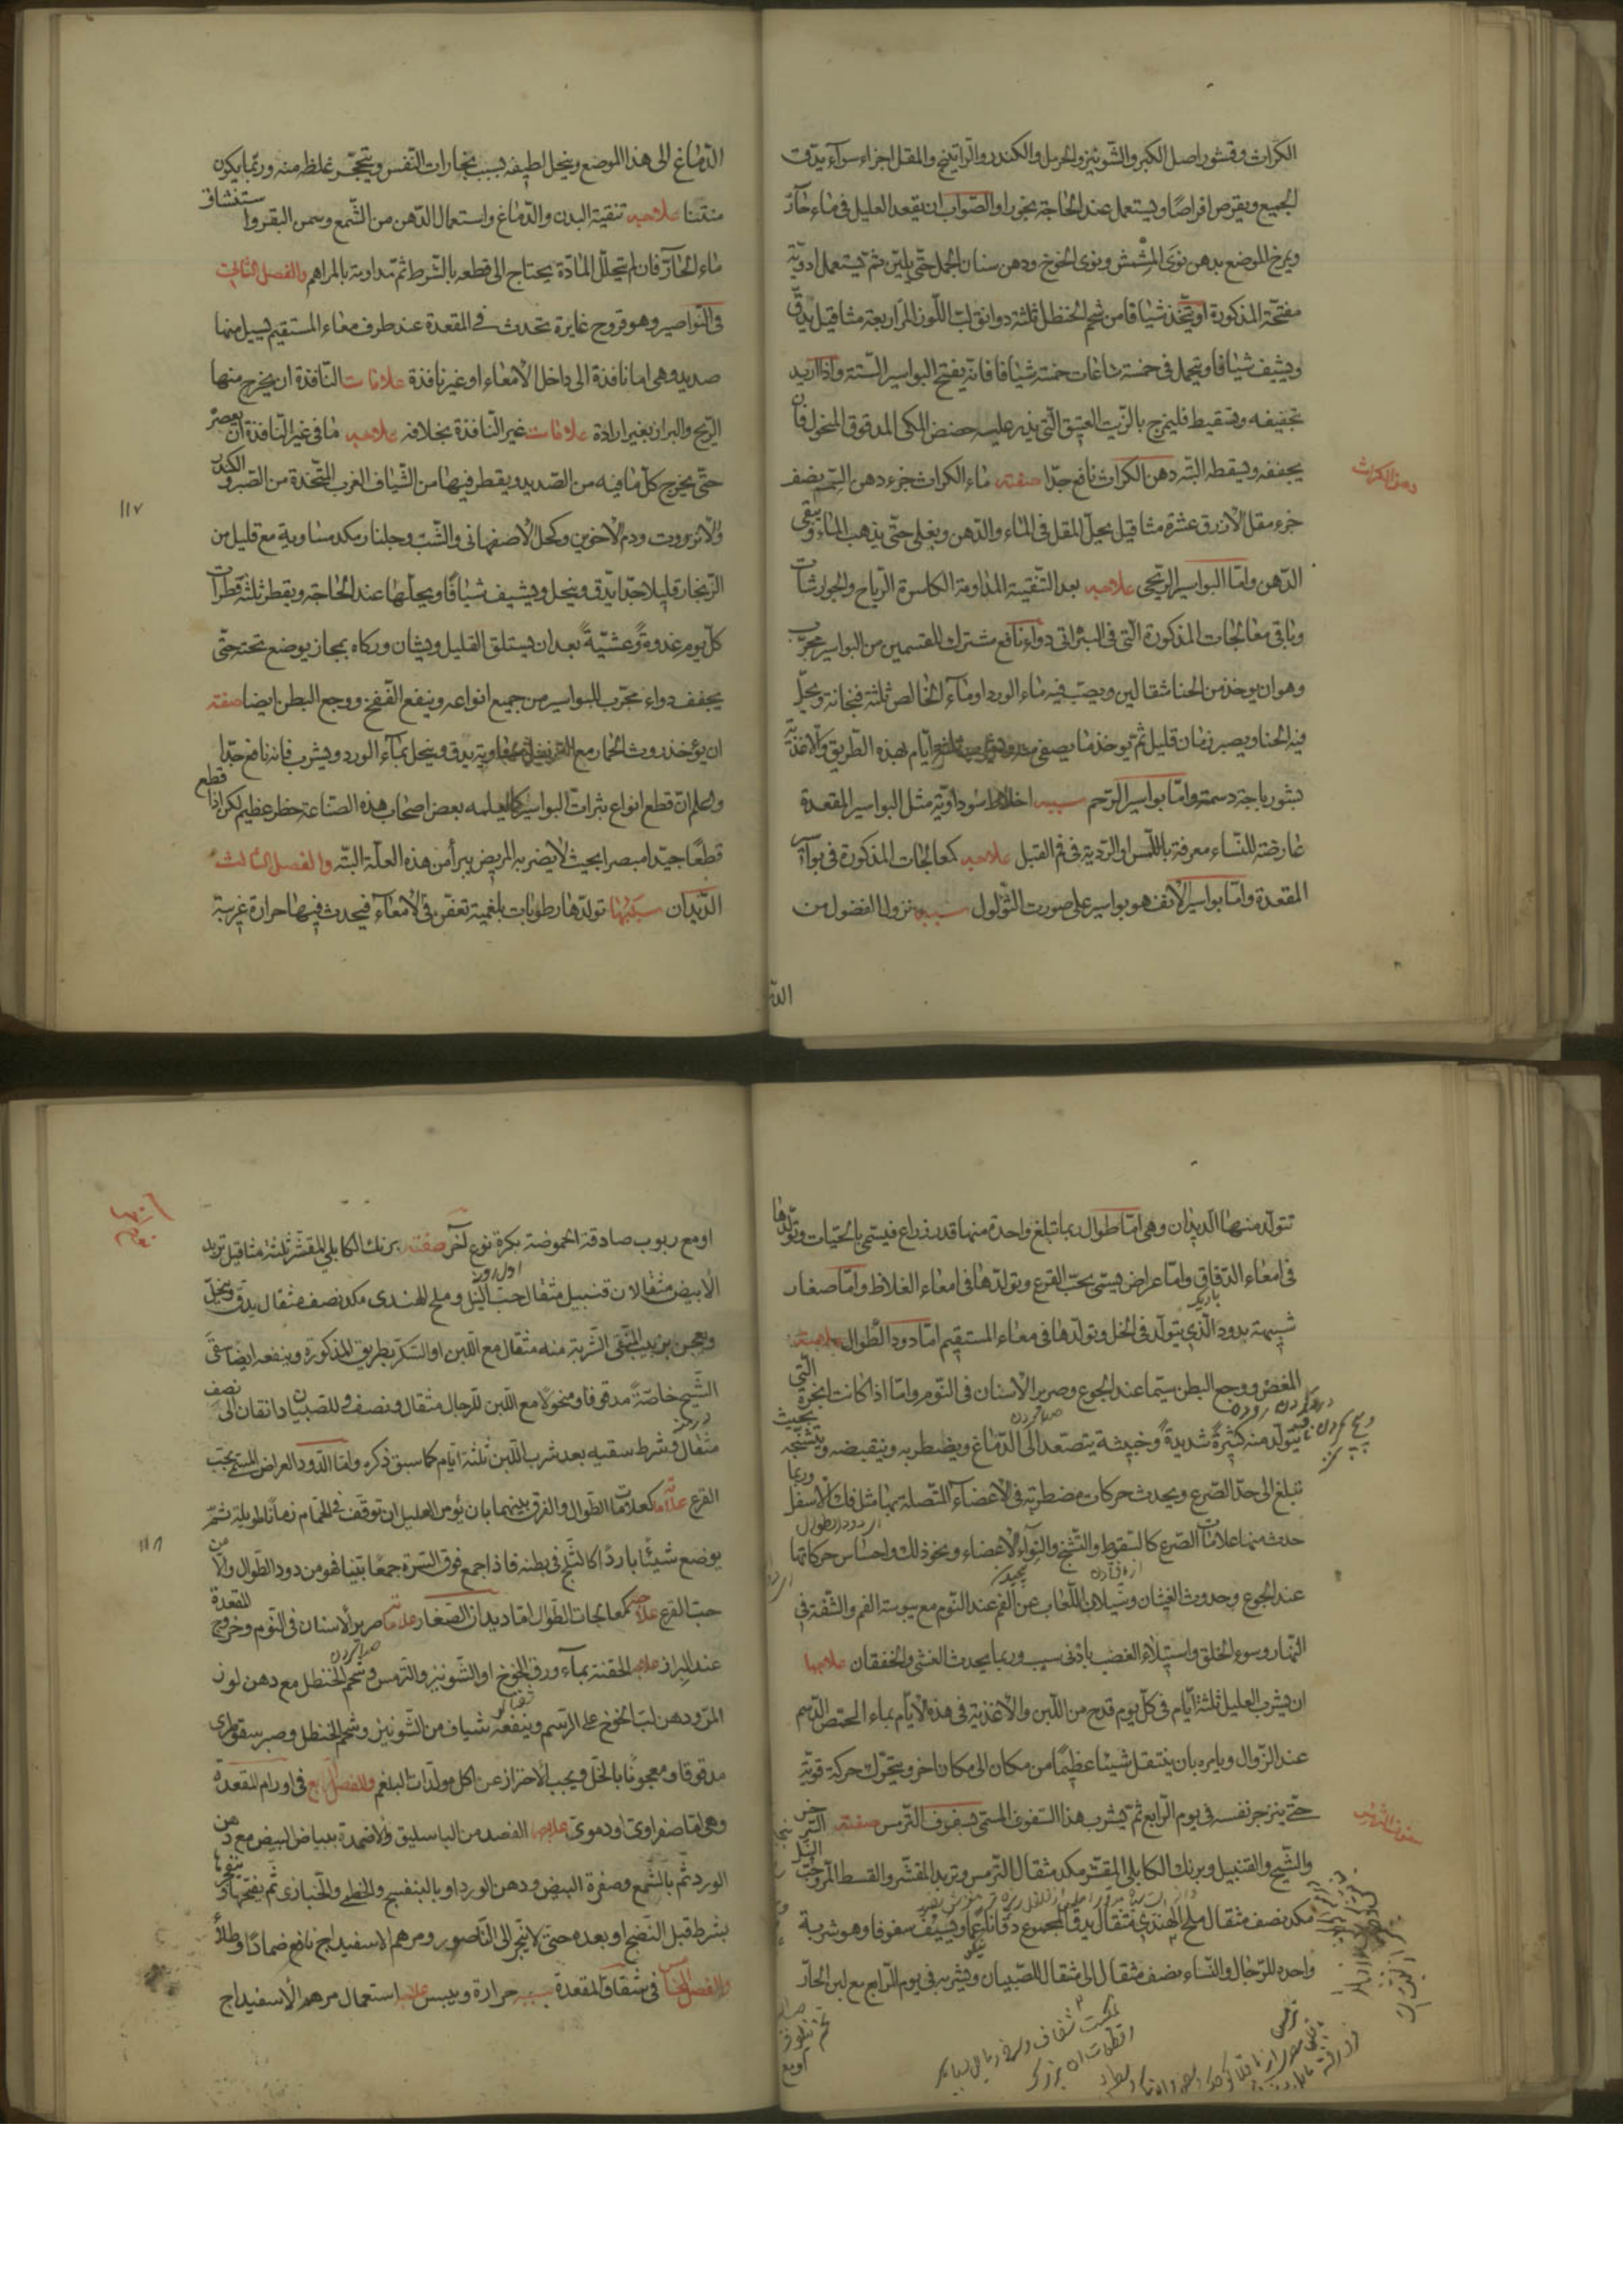 الكراث وقشور اصل الكبر والشونيز والحرمل والكندر والراتينج والمقل اجزاء سوآء يدق
الجميع ويقرص اقراصًا ويستعمل عند الحاجة بخورا والصواب ان يقعد العليل فى ماء حآرّ
ويمرخ الموضع بدهن نوى المشمش ونوى الخوخ ودهن سنان الجمل حتّى يليّن ثم يستعمل ادويّة
مفتّحة المذكورة او يتّخذ شيافا من شحم الحنظل ثلثة دوانق لبّ اللّوز المرّ اربعة مثاقيل يدقّ
ويشيف شيافا ويتحمل فى خمسة ساعات خمسة شيافا فانّه يفتح البواسير البتّة واذا اريد
تجفيفه وتسقيطه فليمزج بالزّيت العتيق الّتى يذر عليه حضض المكى المدقوق المنخول فان
يجففه ويسقطه البتّه دهن الكراث نافع جدّا صفته ماء الكراث جزء دهن نصف
دهن الكراث
جزء مقل الازرق عشرة مثاقيل يحلّ المقل فى الماء والدّهن ويغلى حتّى يذهب الماء ويبقى
الدّهن وامّا البواسير الرّيحى علاجه بعد التّنقية المداومة الكاسرة الرّياح والجوارشات
وباقى معالجات المذكورة الّتى فى البثراتى دواء نافع مشترك للقسمين من البواسير مجرّب
وهو ان يوخذ من الحنا مثقالين ويصبّ فيه ماء الورد او مآء الخالص ثلثة فنجانة ويحلّ
فيه الحنا ويصبر زمان قليل ثمّ يوخذ ما يصفى ايّام بهذه الطّريق والاغذيّة
بشورباجة دسمة وامّا بواسير الرّحم سببه اخلاط سوداويّة مثل البواسير المقعدة
عارضة للنّساء معرفة باللّمس او الرّدية فى فم القبل علاجه كمعالجات المذكورة فى بوآسير
المقعدة وامّا بواسير الانف هو بواسير على صورت الثّولول سببه نزول الفضول من
الدّماغ الى هذا الموضع وينحل لطيفه بسبب بخارات النّفس ويتحجّر غلظ منه وربّما يكون
منتنا علاجه تنقية البدن والدّماغ واستعمال الدّهن من الشّمع وسمن البقر واستنشاق
ماء الحارّ فان لم يتحلّل المادّة يحتاج الى قطعه بالشّرط ثمّ مداومة بالمراهم والفصل الثانى
فى النّواصير وهو قروح غايرة تحدث فى المقعدة عند طرف معاء المستقيم يسيل منها
صديد وهى اما نافذة الى داخل الامعاء او غير نافذة علامات النّافذة ان يخرج منها
الرّيح والبراز بغير ارادة علامات غير النّافذة بخلافه علاجه ما فى غير النّافذة ان يعصر
حتّى يخرج كلّ ما فيه من الصّديد ويقطر فيها من الشّياف الغرب المتّخذة من الصّبر والكندر
١١٧
والانزروت ودم الاخوين وكحل الاصفهانى والشّب وجلنار مكد مساوية مع قليل من
الزّنجار قليلا جدّا يدّق وينحل ويشيف شيافًا ويحلّها عند الحاجة ويقطر ثلثة قطرات
كلّ يوم غدوةً وعشيّةً بعد ان يستلق القليل ويشان وركاه بمجاز يوضع تحته حتّى
يجفف دواء مجرّب للبواسير من جميع انواعه وينفع النّفخ ووجع البطن ايضا صفته
ان يؤخذ روث الحمار مع يدق وينحل بمآء الورد ويشرب فانه نافع جدّا
واعلم انّ قطع انواع بثرات البواسير كما يعلمه بعض اصحاب هذه الصّناعة خطر عظيم لكن اذا قطع
قطعًا جيّدا مبصرا بحيث لا يضر به المريض يبرأ من هذه العلّة البتّه والفصل الثالث
الدّيدان سببها تولدها رطوبات بلغمية تعفّن فى الامعآء فيحدث فيها حرارة غريبة
تتولّد منها الدّيدان وهى امّا طوال ربما تبلغ واحدة منها قدر ذراع فيسمّى بالحيّات وتولّدها
فى امعاء الدّقاق وامّا عراض يسمّى بحبّ القرع وتولّدها فى امعاء الغلاظ وامّا صغار
شبيهة بدود الّذى يتولّد فى الخل وتولّدها فى معاء المستقيم امّا دود الطّوال علامته
المغص ووجع البطن سيّما عند الجوع وصرير الاسنان فى النّوم وامّا اذا كانت ابخرة الّتى
يتولّد منه كثيرةً شديدةً وخبيثة يتصعّد الى الدّماغ ويضطر به وينقبضه ويتشنّجه بحيث
تبلغ الى حدّ الصّرع ويحدث حركات مضطربة فى الاعضاء المتّصلة بها مثل فك الاسفل وربما
حدث منها علامات الصّرع كالسّقوط والتّشنّج والتواء الاعضاء ونحو ذلك واحساس حركاتها
عند الجوع وحدوث الغثيان وسيلان اللّعاب عن الفم عند النّوم مع يبوسة الفم والشّفة فى
النّهار وسوء الخلق واستيلاء الغضب بادنى سبب وربما يحدث الغشى والخفقان علاجها
ان يشرب العليل ثلثة ايّام فى كلّ يوم قدح من اللّبن والاغذية فى هذه الايّام بماء الحمّص الدّسم
عند الزّوال ويامره بان ينتقل شيئا عظيمًا من مكان الى مكان اخر ويتحرّك حركة قويّة
حتّى ينزجر نفسه فى يوم الرّابع ثمّ يشرب هذا السّفوف المسمّى بسفوف التّرمس صفته
سفوف التّرمس
والشّيح والقنبيل وبرنك الكابلى المقشّر مكد مثقال التّرمس وتربد المقشّر والقسط المرّ وحبّ النّيل
مكد نصف مثقال ملح الهندى مثقال يدقّ المجموع دقّا ناعمًا ويسفّ سفوفا وهو شربة
واحده للرّجال والنّساء نصف مثقال الى مثقال للصّبيان ويشربه فى يوم الرّابع مع لبن الحارّ
او مع ربوب صادقة الحموضة بكرة نوع آخر صفته برنك الكابلى المقشّر ثلثة مثاقيل تربد
الابيض مثقالان قنبيل مثقال حبّ النّيل وملح الهندى مكد نصف مثقال يدق وينخل
ويعجن بزبيب المنقّى الشّربة منه مثقال مع اللّبن او السّكّر بطريق المذكورة وينفعه ايضا سقى
الشّيح خاصّة مدقوقا ومنخولا مع اللّبن للرّجال مثقال ونصف وللصّبيان دانقان الى نصف
مثقال وشرط سقيه بعد شرب اللّبن ثلثة ايّام كما سبق ذكره وامّا الدّود العراض المسمّى بحبّ
القرع علاماته كعلامات الطّوال والفرق بينهما بان يؤمر العليل ان توقّف فى الحمّام زمانًا طويلة ثمّ
١١٨
يوضع شيئًا باردًا كالثّلج فى بطنه فاذا جمع فوق السّرة جمعًا بيّنا فهو من دود الطّوال والّا من
حبّ القرع علاجه كمعالجات الطّوال امّا ديدان الصّغار علامته صرير الاسنان فى النّوم وخروج المقعدة
عند البراز علاجه الحقنة بمآء ورق الخوخ او الشّونيز والتّرمس وشحم الحنظل مع دهن لوز
المرّ ودهن لبّ الخوخ على الرّسم وينفعه شياف من الشّونيز وشحم الحنظل وصبر سقوطرى
مدقوقا ومعجونا بالخلّ ويجب الاحتراز عن اكل مولّدات البلغم والفصل الرابع فى اورام المقعدة
وهى امّا صفراوىّ او دموىّ علاجها الفصد من الباسليق والاضمدة ببياض البيض مع دهن
الورد ثمّ بالشّمع وصفرة البيض ودهن الورد او بالبنفسج والخطمى والخبّازى ثمّ يفتّحها
بشرط قبل النّضج او بعده حتّى لا ينجر الى النّاصور ومرهم الاسفيداج نافع ضمادًا وطلاءً
والفصل الخامس فى شقاق المقعدة سببه حرارة ويبس علاجه استعمال مرهم الاسفيداج